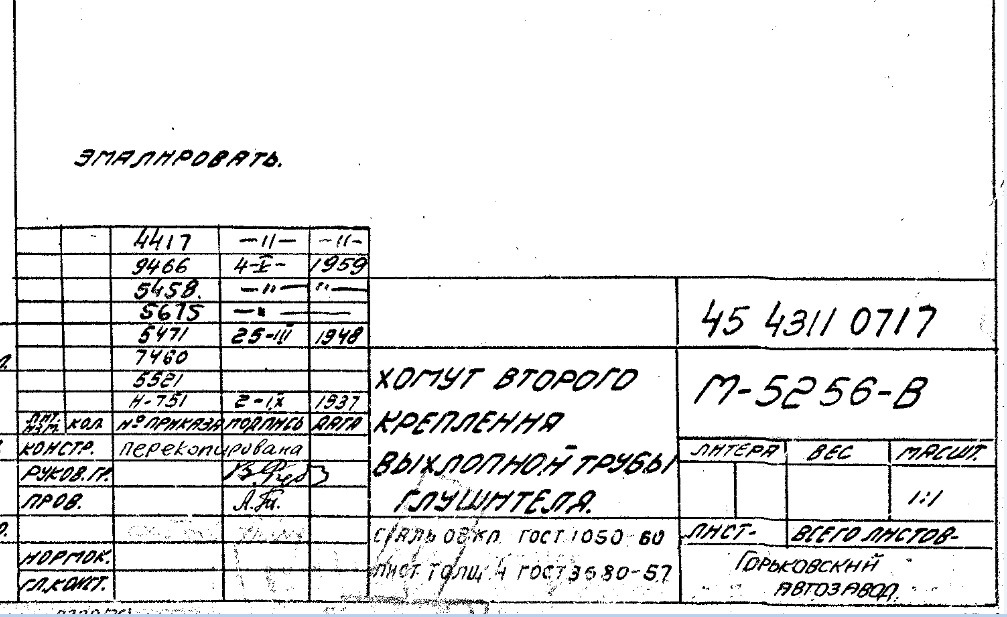 ЭМАЛИРОВАТЬ.
4417 —〃— —〃—
9466 4-X- 1959
5458. —〃— 〃—
5675 —〃—
5471 25-III 1948
7460
5521
Н-751 2-IX 1937
ЛИТ. ИЗМ. КОЛ. № ПРИКАЗА ПОДПИСЬ ДАТА
КОНСТР. перекопирована
РУКОВ. ГР.
ПРОВ.
НОРМОК.
ГЛ. КОНСТ.
45 4311 0717
ХОМУТ ВТОРОГО
КРЕПЛЕНИЯ
ВЫХЛОПНОЙ ТРУБЫ
ГЛУШИТЕЛЯ.
М-5256-В
ЛИТЕРА ВЕС МАСШТ.
1:1
СТАЛЬ 08 КП. ГОСТ 1050-60
ЛИСТ ТОЛЩ. 4 ГОСТ 3680-57
ЛИСТ- ВСЕГО ЛИСТОВ-
ГОРЬКОВСКИЙ
АВТОЗАВОД.